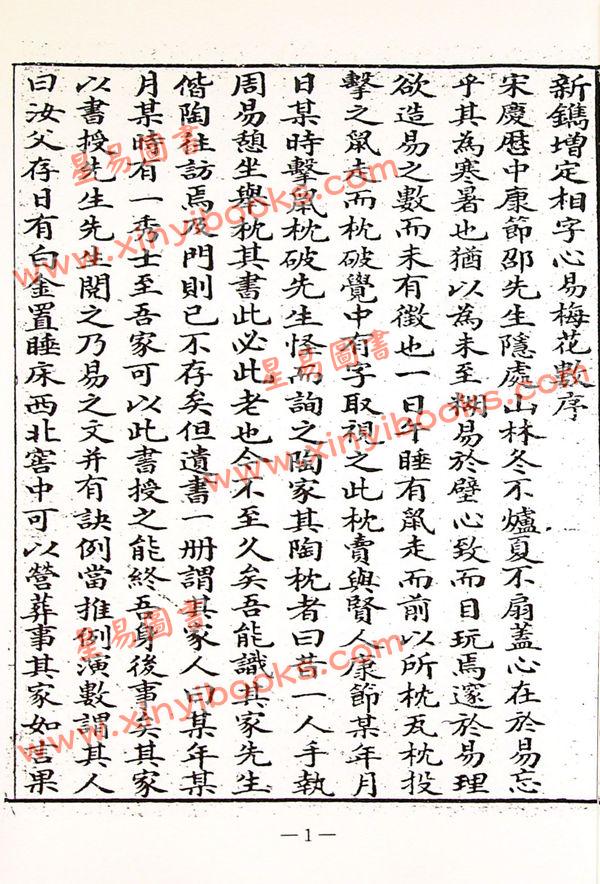 新鐫增定相字心易梅花數序
宋慶曆中康節邵先生隱處山林冬不爐夏不扇蓋心在於易忘
乎其為寒暑也猶以為未至糊易於壁心致而目玩焉邃於易理
欲造易之數而未有徵也一日午睡有鼠走而前以所枕瓦枕投
擊之鼠走而枕破覺中有字取視之此枕賣與賢人康節某年月
日某時擊鼠枕破先生怪而詢之陶家其陶枕者曰昔一人手執
周易憩坐舉枕其書此必此老也今不至久矣吾能識其家先生
偕陶往訪焉及門則已不存矣但遺書一册謂其家人曰某年某
月某時有一秀士至吾家可以此書授之能終吾身後事矣其家
以書授先生先生閱之乃易之文并有訣例當推例演數謂其人
曰汝父存日有白金置睡床西北窖中可以營葬事其家如言果
—1—
星易圖書
www.xinyibooks.com
星易圖書
www.xinyibooks.com
星易圖書
www.xinyibooks.com